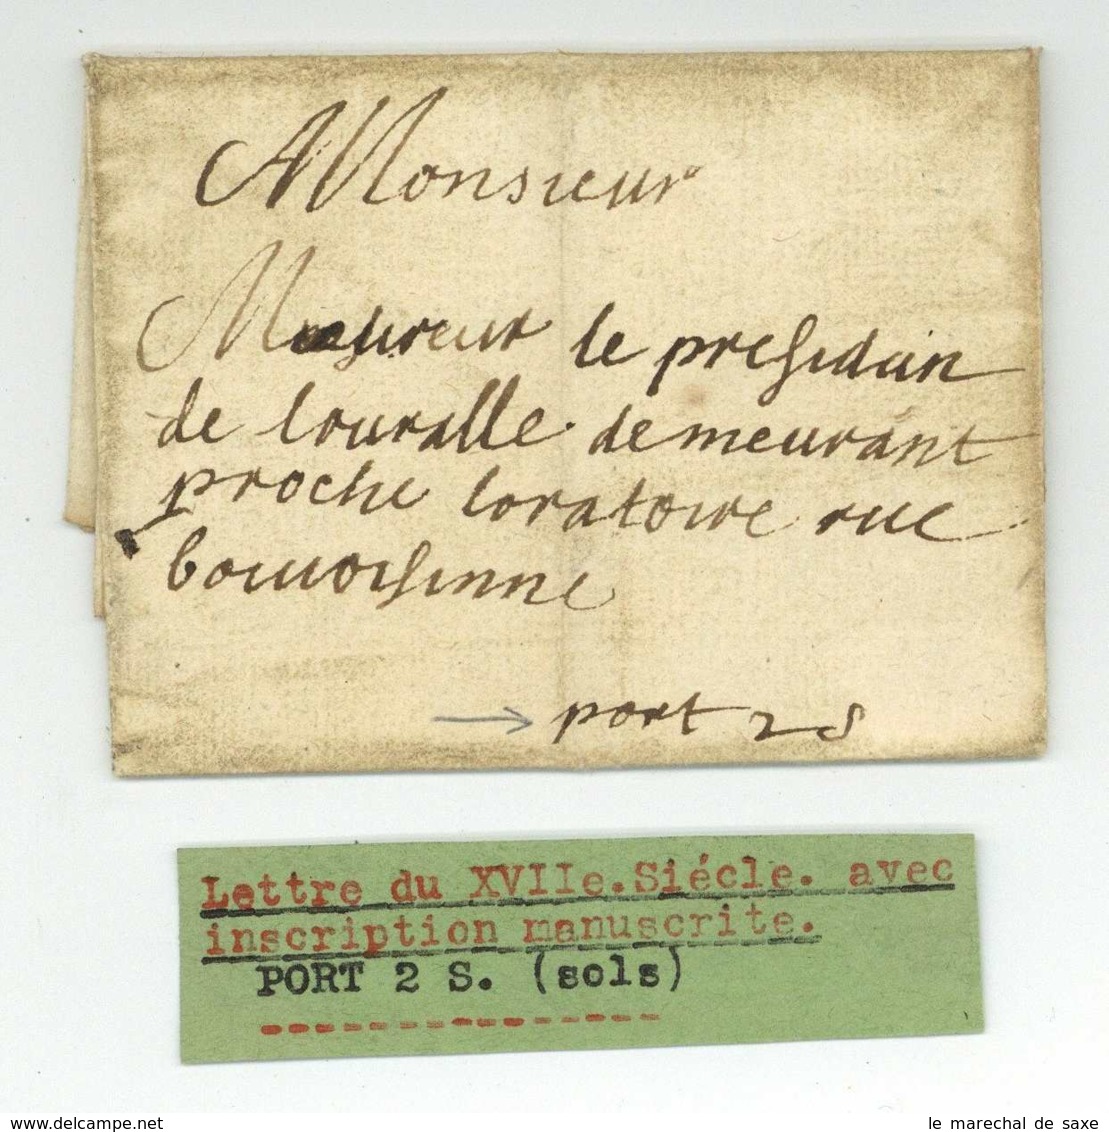 A Monsieur
Monsieur le presidain
de louralle demeurant
proche loratoire rue
port 2 s
Lettre du XVIIe.Siécle. avec
inscription manuscrite.
PORT 2 S. (sols)
---------------
delcampe.net
le marechal de saxe